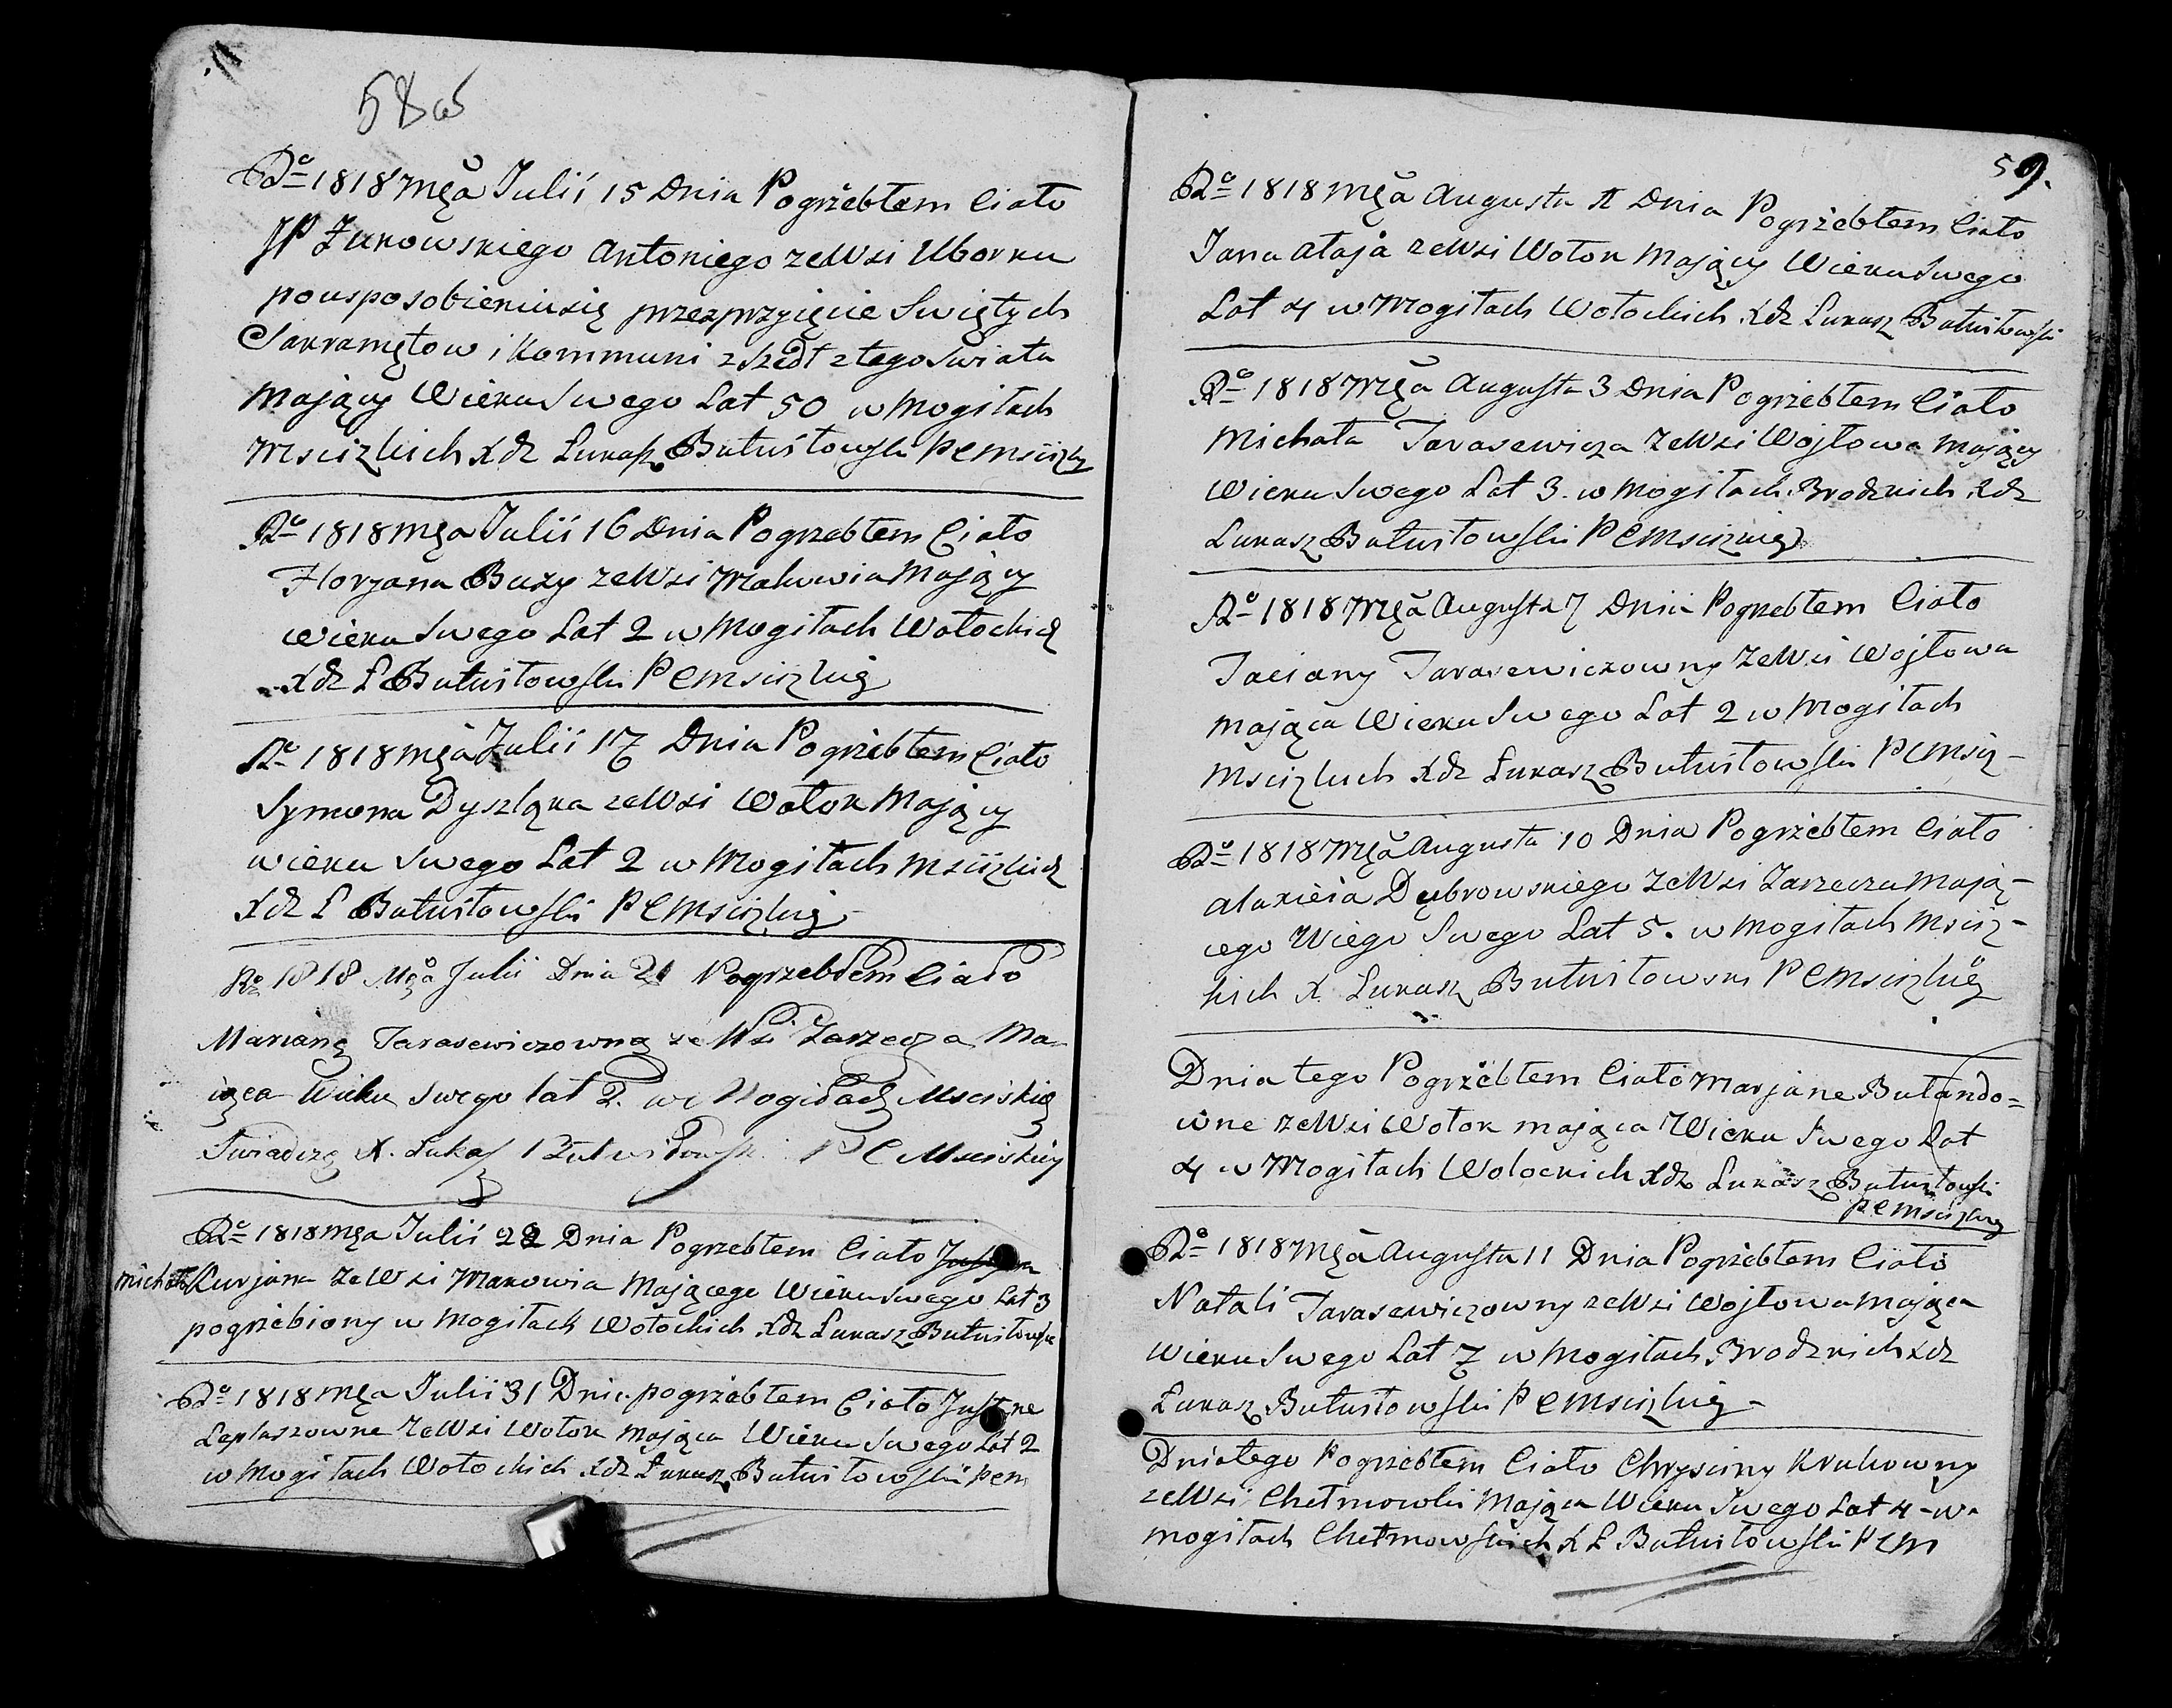 58
Ro 1818 Mca Julii 15 Dnia Pogrżebłem Ciało
JP Żukowskiego Antoniego zeWsi Uborku
pousposobieniusię przezprzyięcie Swiętych
Sakramętow i Kommuni zszedł ztego Swiata
Mający Wieku Swego Lat 50 w Mogiłach
Msciżkich Xdz Łukasz Butwiłowski P C Msciżk
Ro 1818 Mca Julii 16 Dnia Pogrzebłem Ciało
Floryana Buzy zeWsi Makowia Mający
wieku Swego Lat 2 w Mogiłach Wołockich
Xdz Ł Butwiłowski P C Msciżkiej
Ro 1818 Mca Julii 17 Dnia Pogrżebłem Ciało
Symona Dyszląka zeWsi Wołok Mający
wieku Swego Lat 2 w Mogiłach Msciżkich
Xdz Ł Butwiłowski P C Msciżkiej
Ro 1818 Mca Julii Dnia 21 Pogrzebłem Ciało
Marianę Tarasewiczowną ze Wsi Zarzecza Ma-
iąca Wieku Swego lat 2. w Mogiłach Msciskich
Swiadczę X. Łukasz Butwiłowski P C Msciskiey
Ro 1818 Mca Julii 22 Dnia Pogrzebłem Ciało
Michała Kurjana zeWsi Makowia Mającego Wieku Swego Lat 3
pogrżebiony w Mogiłach Wołockich Xdz Łukasz Butwiłowski
Ro 1818 Mca Julii 31 Dnia pogrżebłem Ciało Justyne
Leplaszowne zeWsi Wołok Mająca Wieku Swego Lat 2
w Mogiłach Wołockich Xdz Łukasz Butwiłowski P C M
59.
Ro 1818 Mca Augusta Dnia Pogrżebłem Ciało
Jana Ałaja zeWsi Wołok Mający Wieku Swego
Lat 4 w Mogiłach Wołockich Xdz Łukasz Butwiłowski
Ro 1818 Mca Augusta 3 Dnia Pogrżebłem Ciało
Michała Tarasewicza zeWsi Wojtowa Mający
Wieku Swego Lat 3. w Mogiłach Brodzkich Xdz
Łukasz Butwiłowski P C Msciżkiej
Ro 1818 Mca Augusta 7 Dnia Pogrzebłem Ciało
Taciany Tarasewiczowny zeWsi Wojtowa
Mająca Wieku Swego Lat 2 w Mogiłach
Msciżkich Xdz Łukasz Butwiłowski P C Msciż-
Ro 1818 Mca Augusta 10 Dnia Pogrżebłem Ciało
Alaxieia Dąbrowskiego zeWsi Zarzecza Mają-
cego Wiego Swego Lat 5. w Mogiłach Msciż-
kich X Łukasz Butwiłowski P C Msciżkiej
Dnia tego Pogrżebłem Ciało Marjane Bułando=
wne zeWsi Wołok mająca Wieku Swego Lat
4 w Mogiłach Wołockich Xdz Łukasz Butwiłowski
P C Msciżkiej
Ro 1818 Mca Augusta 11 Dnia Pogrżebłem Ciało
Natali Tarasewiczowny zeWsi Wojtowa Mająca
Wieku Swego Lat 7 w Mogiłach Brodzkich Xdz
Łukasz Butwiłowski P C Msciżkiej
Dniatego Pogrzebłem Ciało Chrysciny Krukowny
zeWsi Chełmowki Mająca Wieku Swego Lat 4 - w
mogiłach Chełmowskich X Ł Butwiłowski P C M